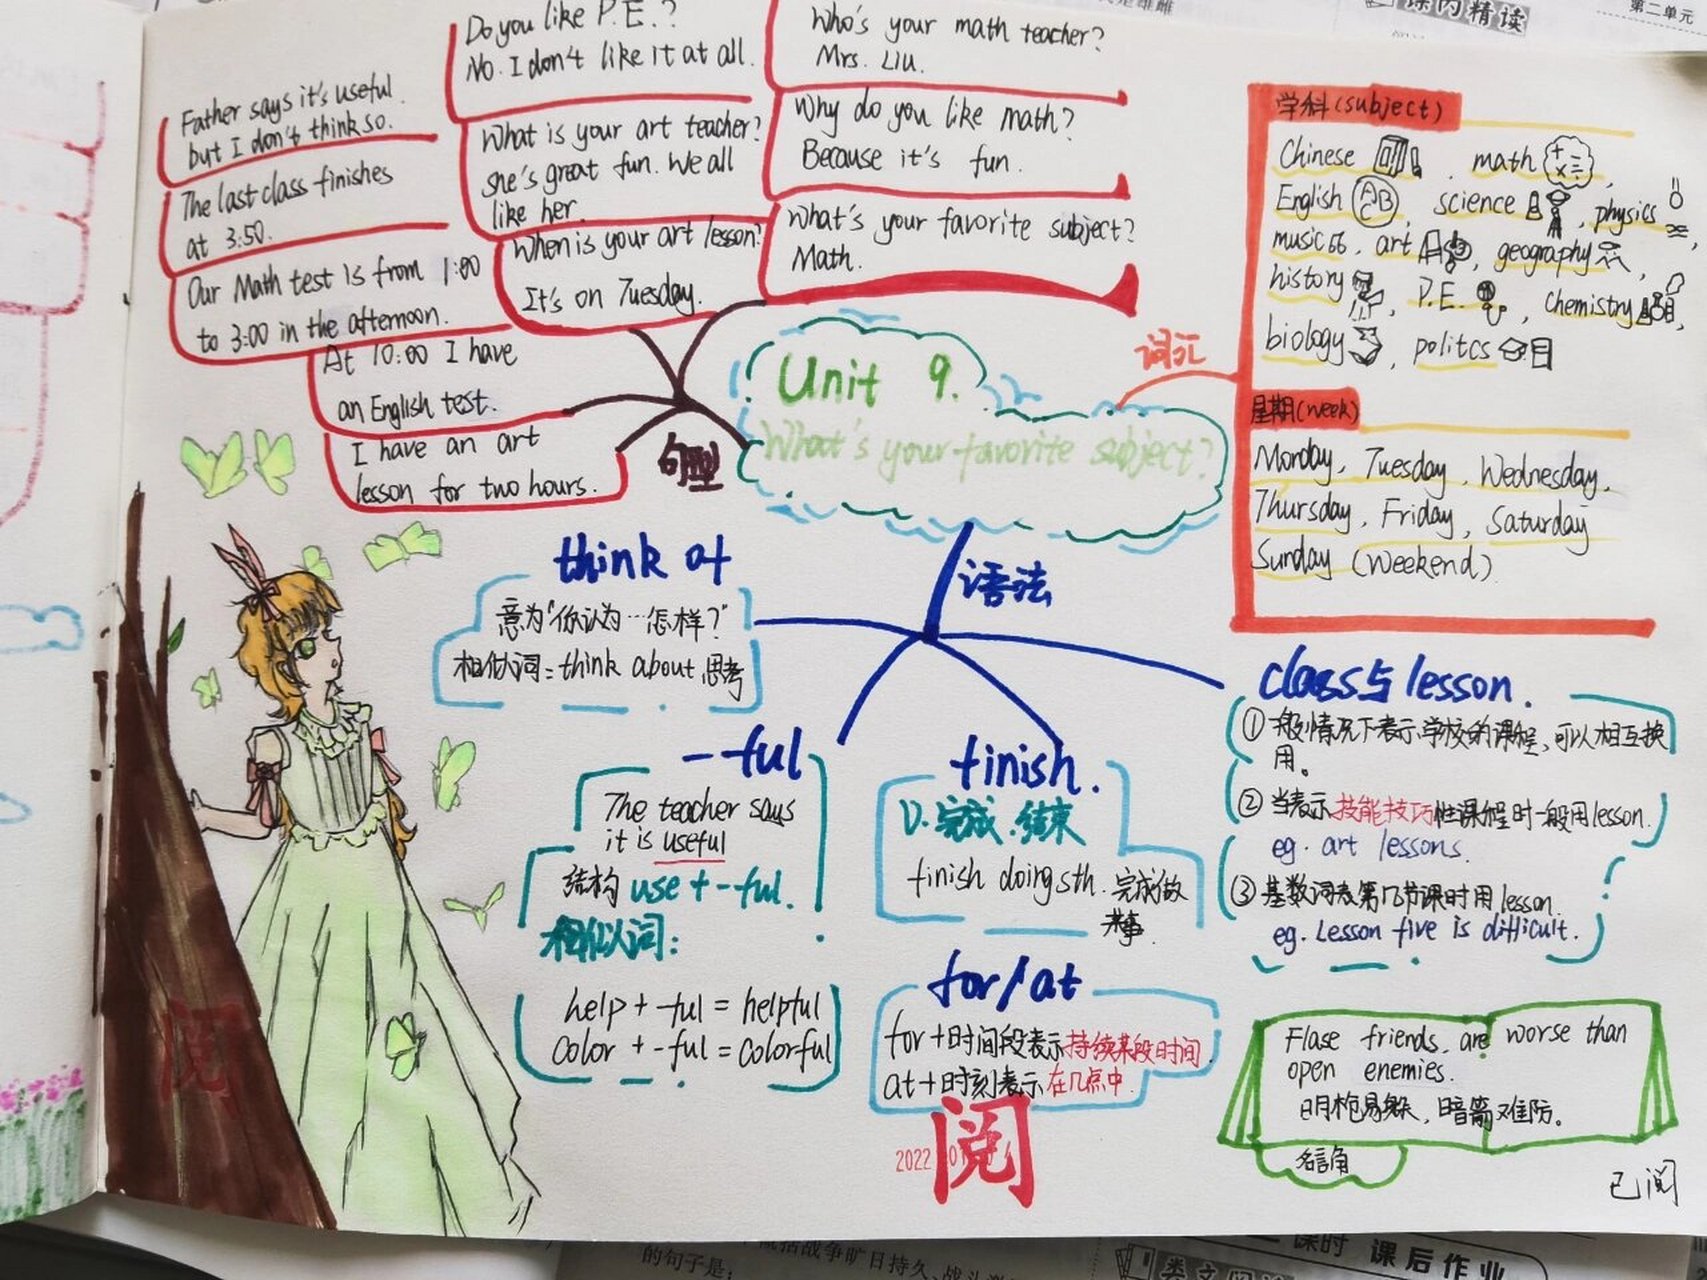 Do you like P.E.?
No. I don't like it at all.
Who's your math teacher?
Mrs. Liu.
Father says it's useful.
but I don't think so.
What is your art teacher?
she's great fun. We all
like her.
Why do you like math?
Because it's fun.
The last class finishes
at 3:50.
When is your art lesson?
It's on Tuesday.
What's your favorite subject?
Math.
Our Math test is from 1:00
to 3:00 in the afternoon.
At 10:00 I have
an English test.
I have an art
lesson for two hours.
句型
Unit 9.
What's your favorite subject?
词汇
学科(subject)
Chinese, math,
English, science, physics,
music, art, geography,
history, P.E., chemistry,
biology, politcs
星期(week)
Monday, Tuesday, Wednesday,
Thursday, Friday, Saturday
Sunday (weekend)
语法
think of
意为"你认为…怎样?"
相似词=think about 思考
--ful
The teacher says
it is useful
结构 use + -ful.
相似词:
help + -ful = helpful
color + -ful = colorful
finish.
V. 完成.结束
finish doing sth. 完成做
某事.
for/at
for+时间段表示持续某段时间.
at+时刻表示在几点中.
class与lesson.
①一般情况下表示学校的课程,可以相互换
用。
②当表示技能技巧性课程时一般用lesson.
eg. art lessons.
③基数词表第几节课时用lesson.
eg. Lesson five is difficult.
Flase friends. are worse than
open enemies.
明枪易躲,暗箭难防。
名言角
阅
阅
2022
已阅
课内精读
第二单元
的句子是:
课时 课后作业